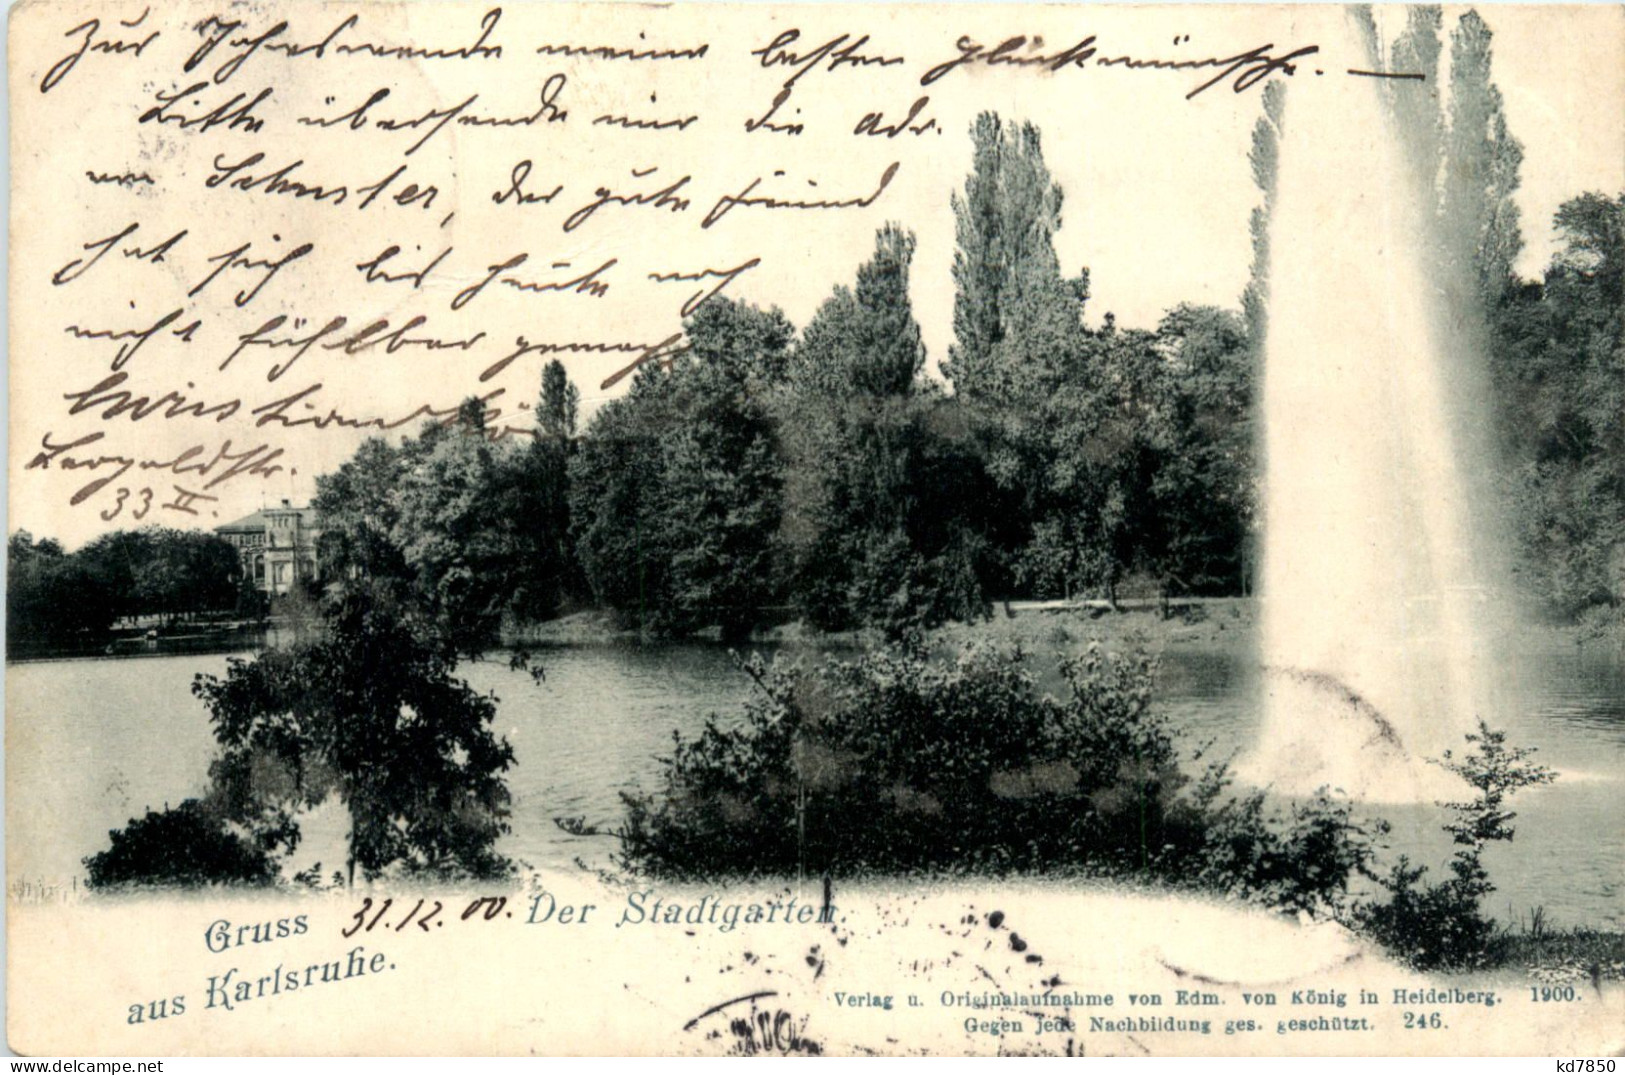 Zur Jahreswende meine besten Glückwünsche. —
Bitte übersende mir die Adr.
von Schuster, der gute Freund
hat sich bis heute noch
nicht fühlbar gemacht
Christian
Leopoldstr.
33 II.
Gruss 31.12.00. Der Stadtgarten.
aus Karlsruhe.
Verlag u. Originalaufnahme von Edm. von König in Heidelberg. 1900.
Gegen jede Nachbildung ges. geschützt. 246.
kd7850